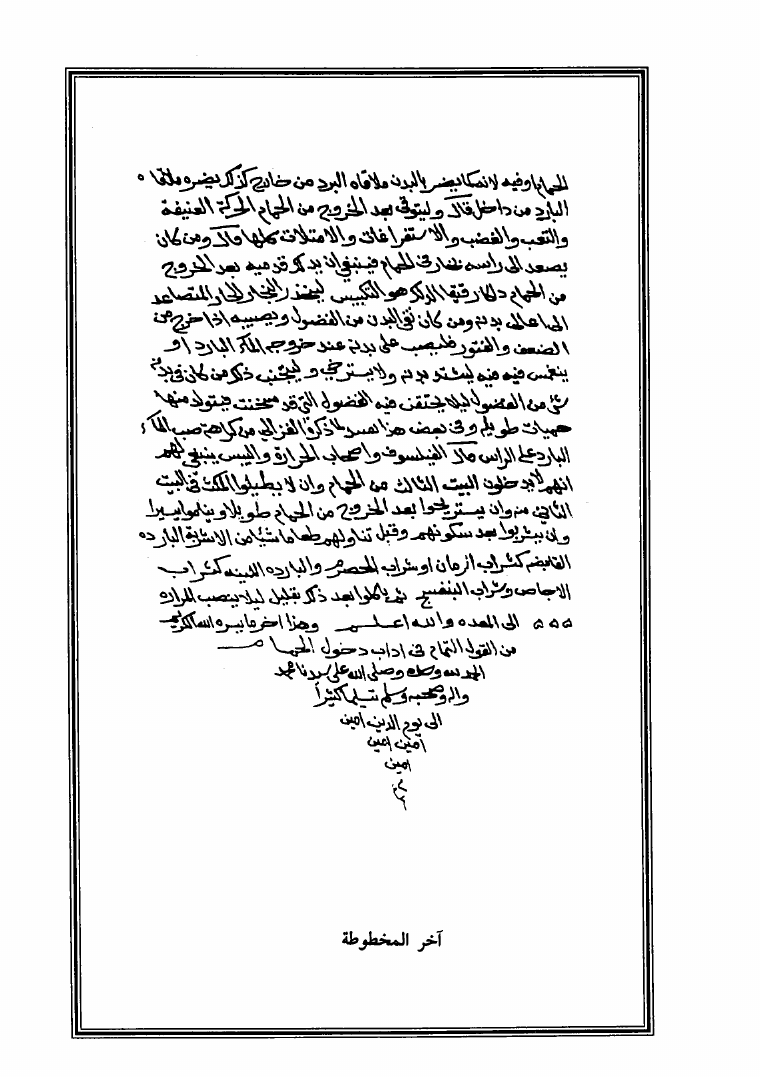 الحمام او فيه لانه كما يضر بالبدن ملاقاه البرد من خارج كذلك يضره ملاقاه
البارد من داخل قال وليتوقى بعد الخروج من الحمام الحركة العنيفة
والتعب والغضب والاستفراغات والامتلات كلها قال ومن كان
يصعد الى راسه بخار في الحمام فينبغي ان يدلك قدميه بعد الخروج
من الحمام دلكا رقيقا الدلك هو التكبيس لينحدر البخار الحار المتصاعد
الى اعالي بدنه ومن كان نقي البدن من الفضول ويصيبه اذا خرج من
الضعف والفتور فليصب على بدنه عند خروجه الماء البارد او
ينغمس فيه ليشتد بدنه ولا يسترخي وليتجنب ذلك من كان في بدنه
شي من الفضول ليلا يحتقن فيه الفضول التي قد سخنت فيتولد منها
حميات طويله وفي بعض هذا لما ذكره الغزالي من كراهة صب الماء
البارد على الراس قال الفيلسوف واصحاب الحرارة واليبس ينبغي لهم
انهم لا يدخلون البيت الثالث من الحمام وان لا يطيلوا المكث في البيت
الثاني منه وان يستريحوا بعد الخروج من الحمام طويلا ويناموا يسيرا
وان يشربوا بعد سكونهم وقبل تناولهم طعاما شيئا من الاشربة البارده
القابضه كشراب الرمان او شراب الحصرم والبارده اللينه كشراب
الاجاص وشراب البنفسج ثم ياكلوا بعد ذلك بقليل ليلا ينصب المراره
الى المعده والله اعلم وهذا اخر ما يسره الله الكريم
من القول التمام في اداب دخول الحمام
الحمد لله وحده وصلى الله على سيدنا محمد
واله وصحبه وسلم تسليما كثيرا
الى يوم الدين امين
امين امين
امين
آخر المخطوطة